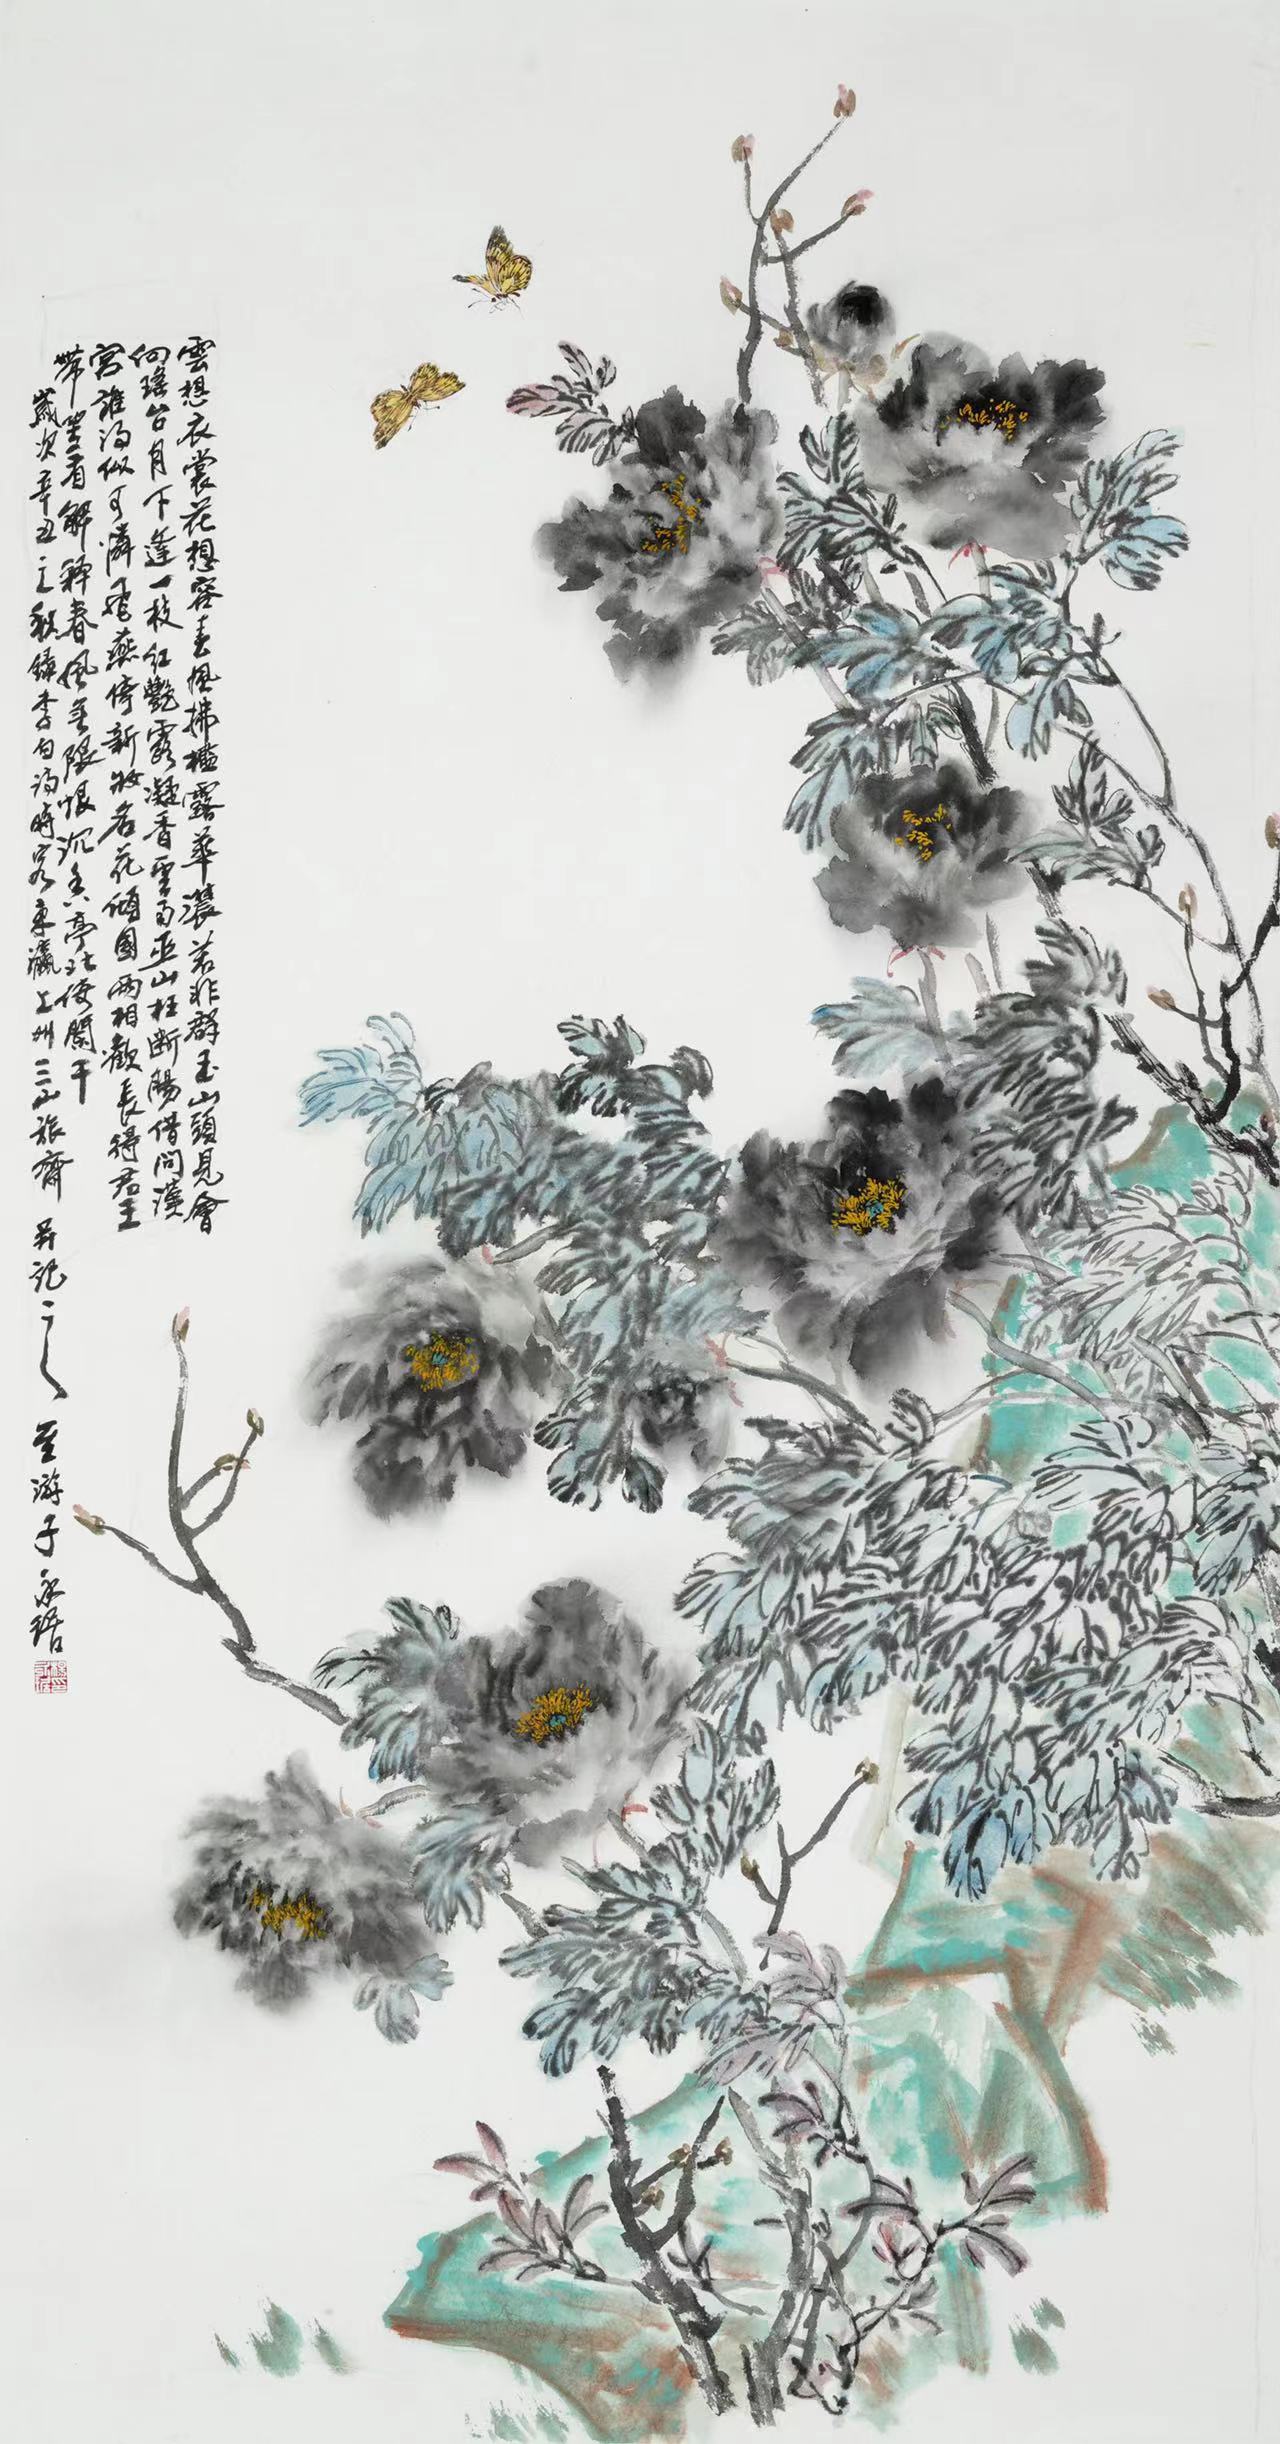 雲想衣裳花想容春風拂檻露華濃若非群玉山頭見會
向瑤台月下逢一枝紅艷露凝香雲雨巫山枉斷腸借問漢
宮誰得似可憐飛燕倚新妝名花傾國兩相歡長得君王
帶笑看解釋春風無限恨沉香亭北倚闌干
歲次辛丑之秋錄李白詩時客東瀛上州三山旅齋 并記之